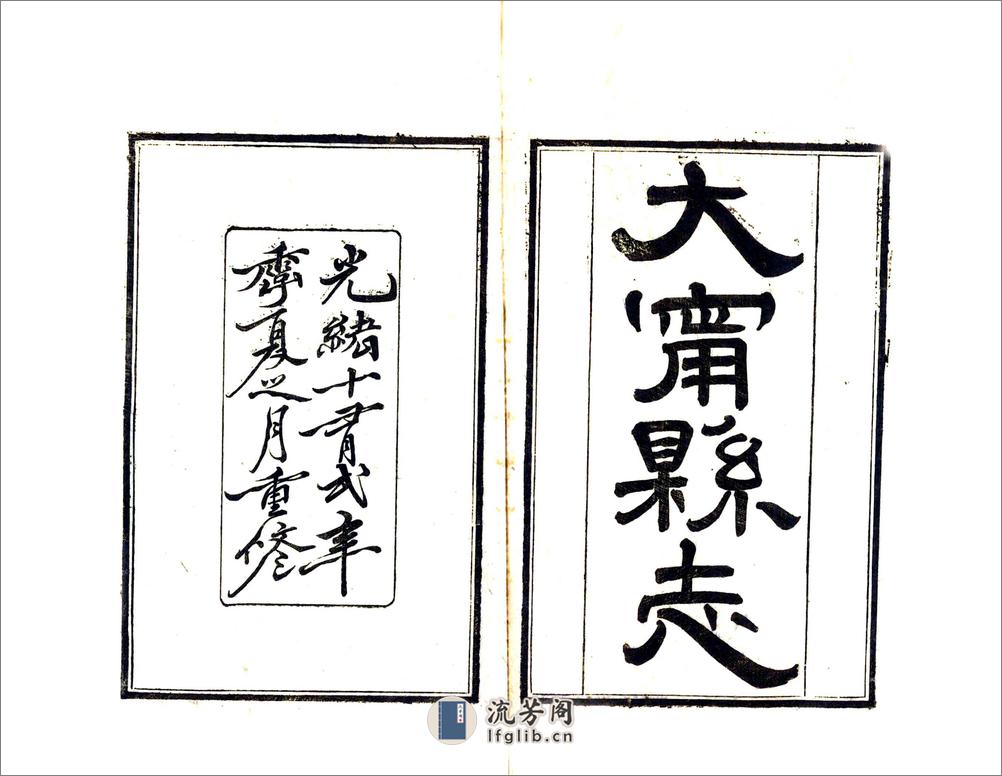 大甯縣志
光緒十有弍年
季夏之月重修
流芳阁
lfglib.cn